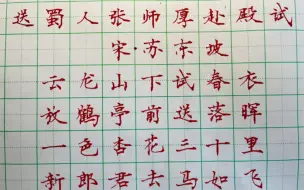 送蜀人张师厚赴殿试
宋·苏东坡
云龙山下试春衣
放鹤亭前送落晖
一色杏花三十里
新郎君去马如飞